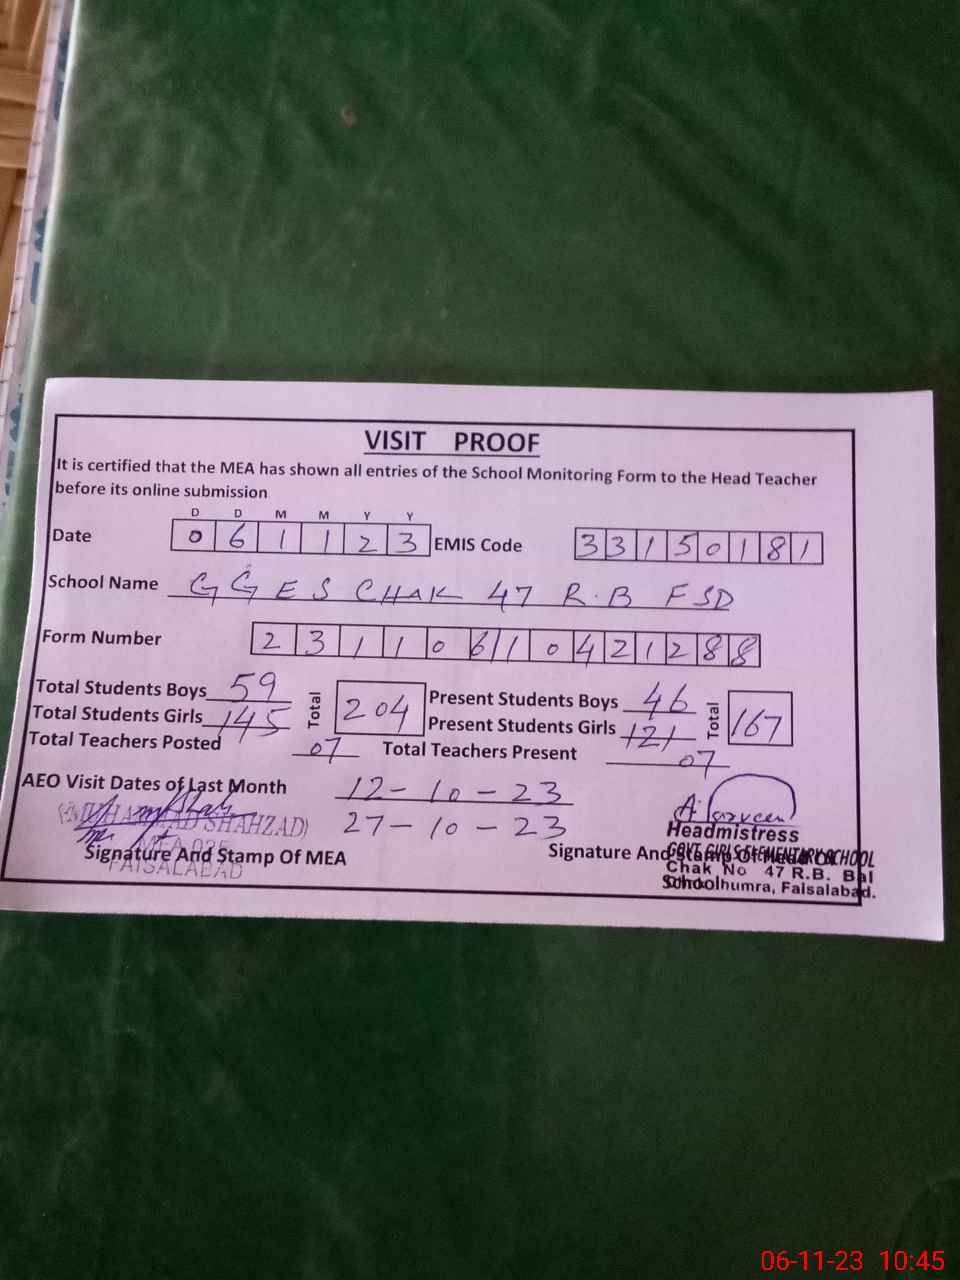 VISIT PROOF
It is certified that the MEA has shown all entries of the School Monitoring Form to the Head Teacher
before its online submission
D D M M Y Y
Date 0 6 1 1 2 3 EMIS Code 3 3 1 5 0 1 8 1
School Name G G E S CHAK 47 R.B FSD
Form Number 2 3 1 1 0 6 1 0 4 2 1 2 8 8
Total Students Boys 59 Total 204 Present Students Boys 46 Total 167
Total Students Girls 145 Present Students Girls 121
Total Teachers Posted 07 Total Teachers Present 07
AEO Visit Dates of Last Month 12-10-23
27-10-23
MUHAMMAD SHAHZAD)
FAISALABAD
Signature And Stamp Of MEA
A. Parveen
Headmistress
Signature And Stamp Of Head Of
School
GOVT. GIRLS ELEMENTARY SCHOOL
Chak No 47 R.B. Bal
Faisalabad.
06-11-23 10:45